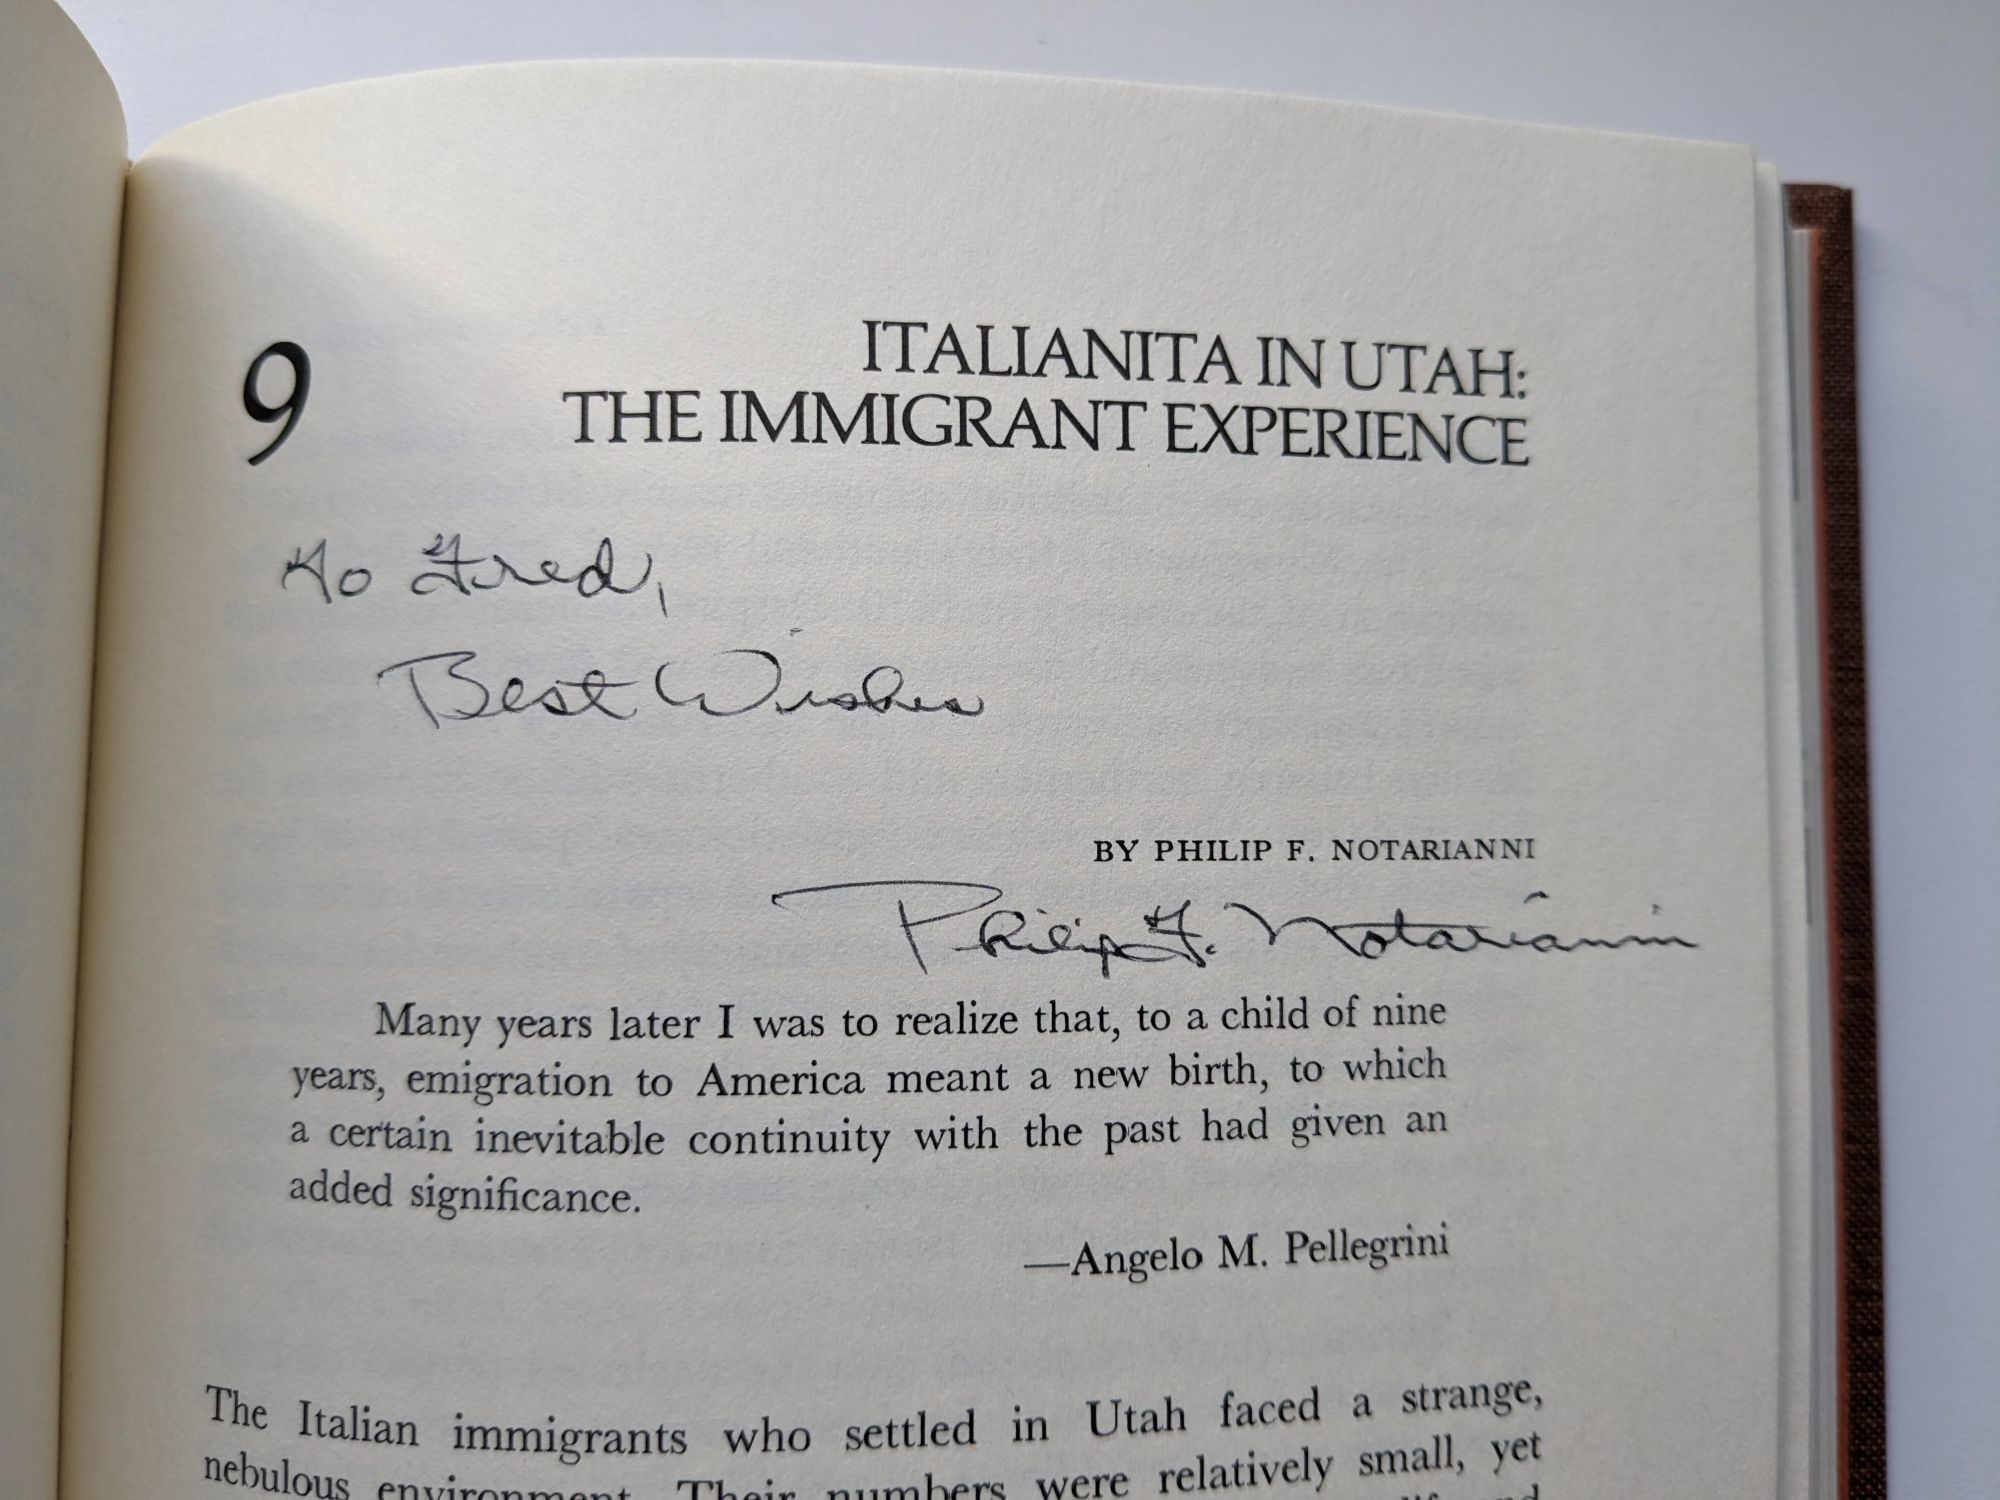 9
ITALIANITA IN UTAH:
THE IMMIGRANT EXPERIENCE
To Fred,
Best Wishes
BY PHILIP F. NOTARIANNI
Philip F. Notarianni
Many years later I was to realize that, to a child of nine
years, emigration to America meant a new birth, to which
a certain inevitable continuity with the past had given an
added significance.
—Angelo M. Pellegrini
The Italian immigrants who settled in Utah faced a strange,
nebulous environment. Their numbers were relatively small, yet